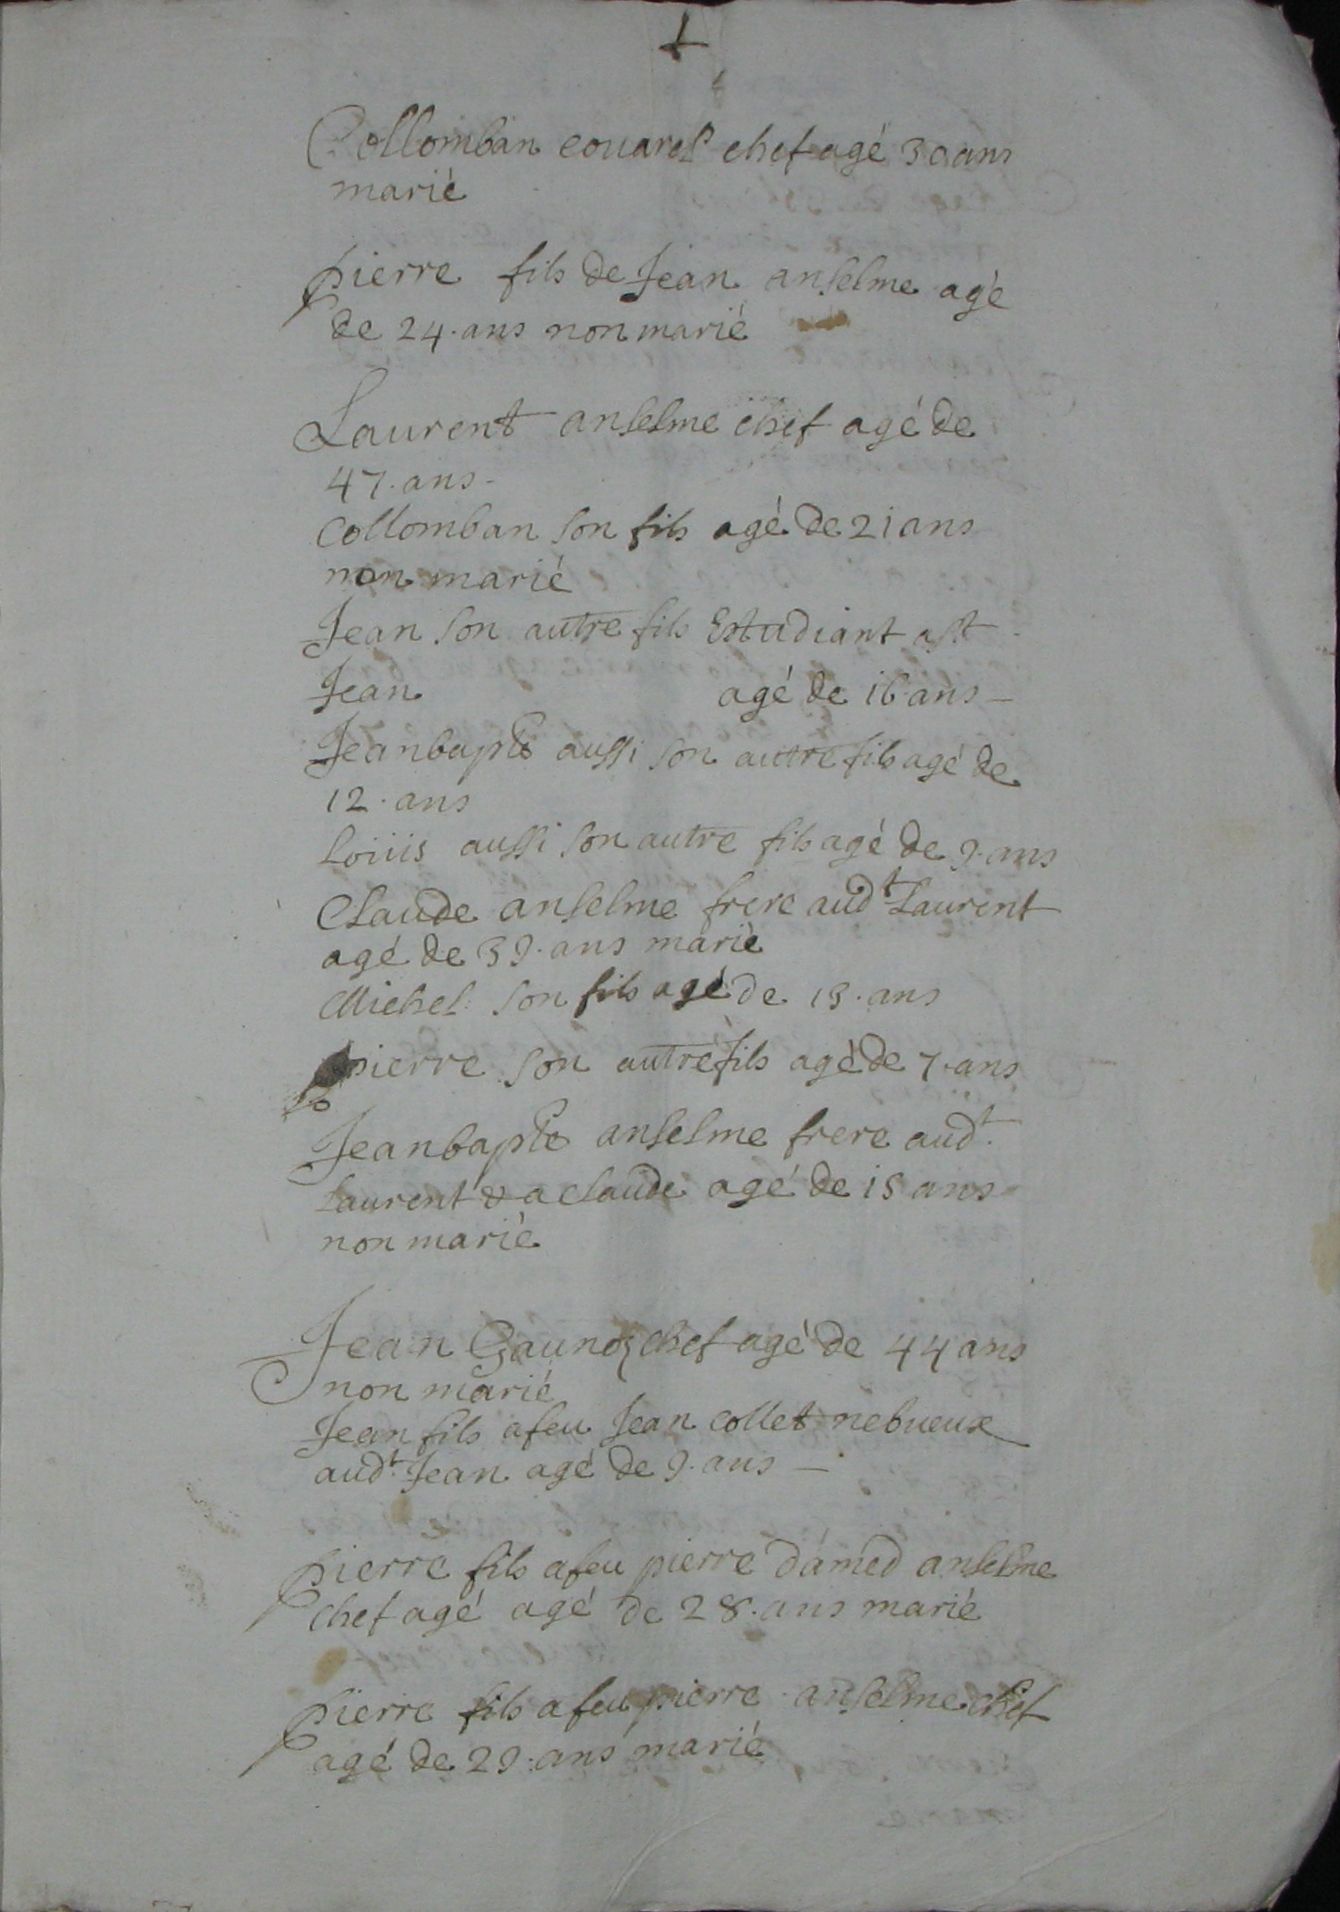 Collomban couares chef agé 30 ans
marié
pierre fils de Jean anselme agé
de 24. ans non marié
Laurent anselme chef agé de
47. ans -
Collomban son fils agé de 21 ans
non marié
Jean son autre fils Estudiant
Jean agé de 16 ans —
Jeanbapte aussi son autre fils agé de
12. ans
Loüis aussi son autre fils agé de 9. ans
Claude anselme frere audt Laurent
agé de 39. ans marié
Michel son fils agé de 13. ans
pierre son autre fils agé de 7. ans
Jeanbapte anselme frere audt.
Laurent & a claude agé de 15 ans
non marié
Jean Gaunoz chef agé de 44 ans
non marié
Jean fils afeu Jean collet nebueux
audt. Jean agé de 9. ans —
pierre fils afeu pierre damed anselme
chef agé agé de 28. ans marié
pierre fils afeu pierre anselme chef
agé de 29. ans marié